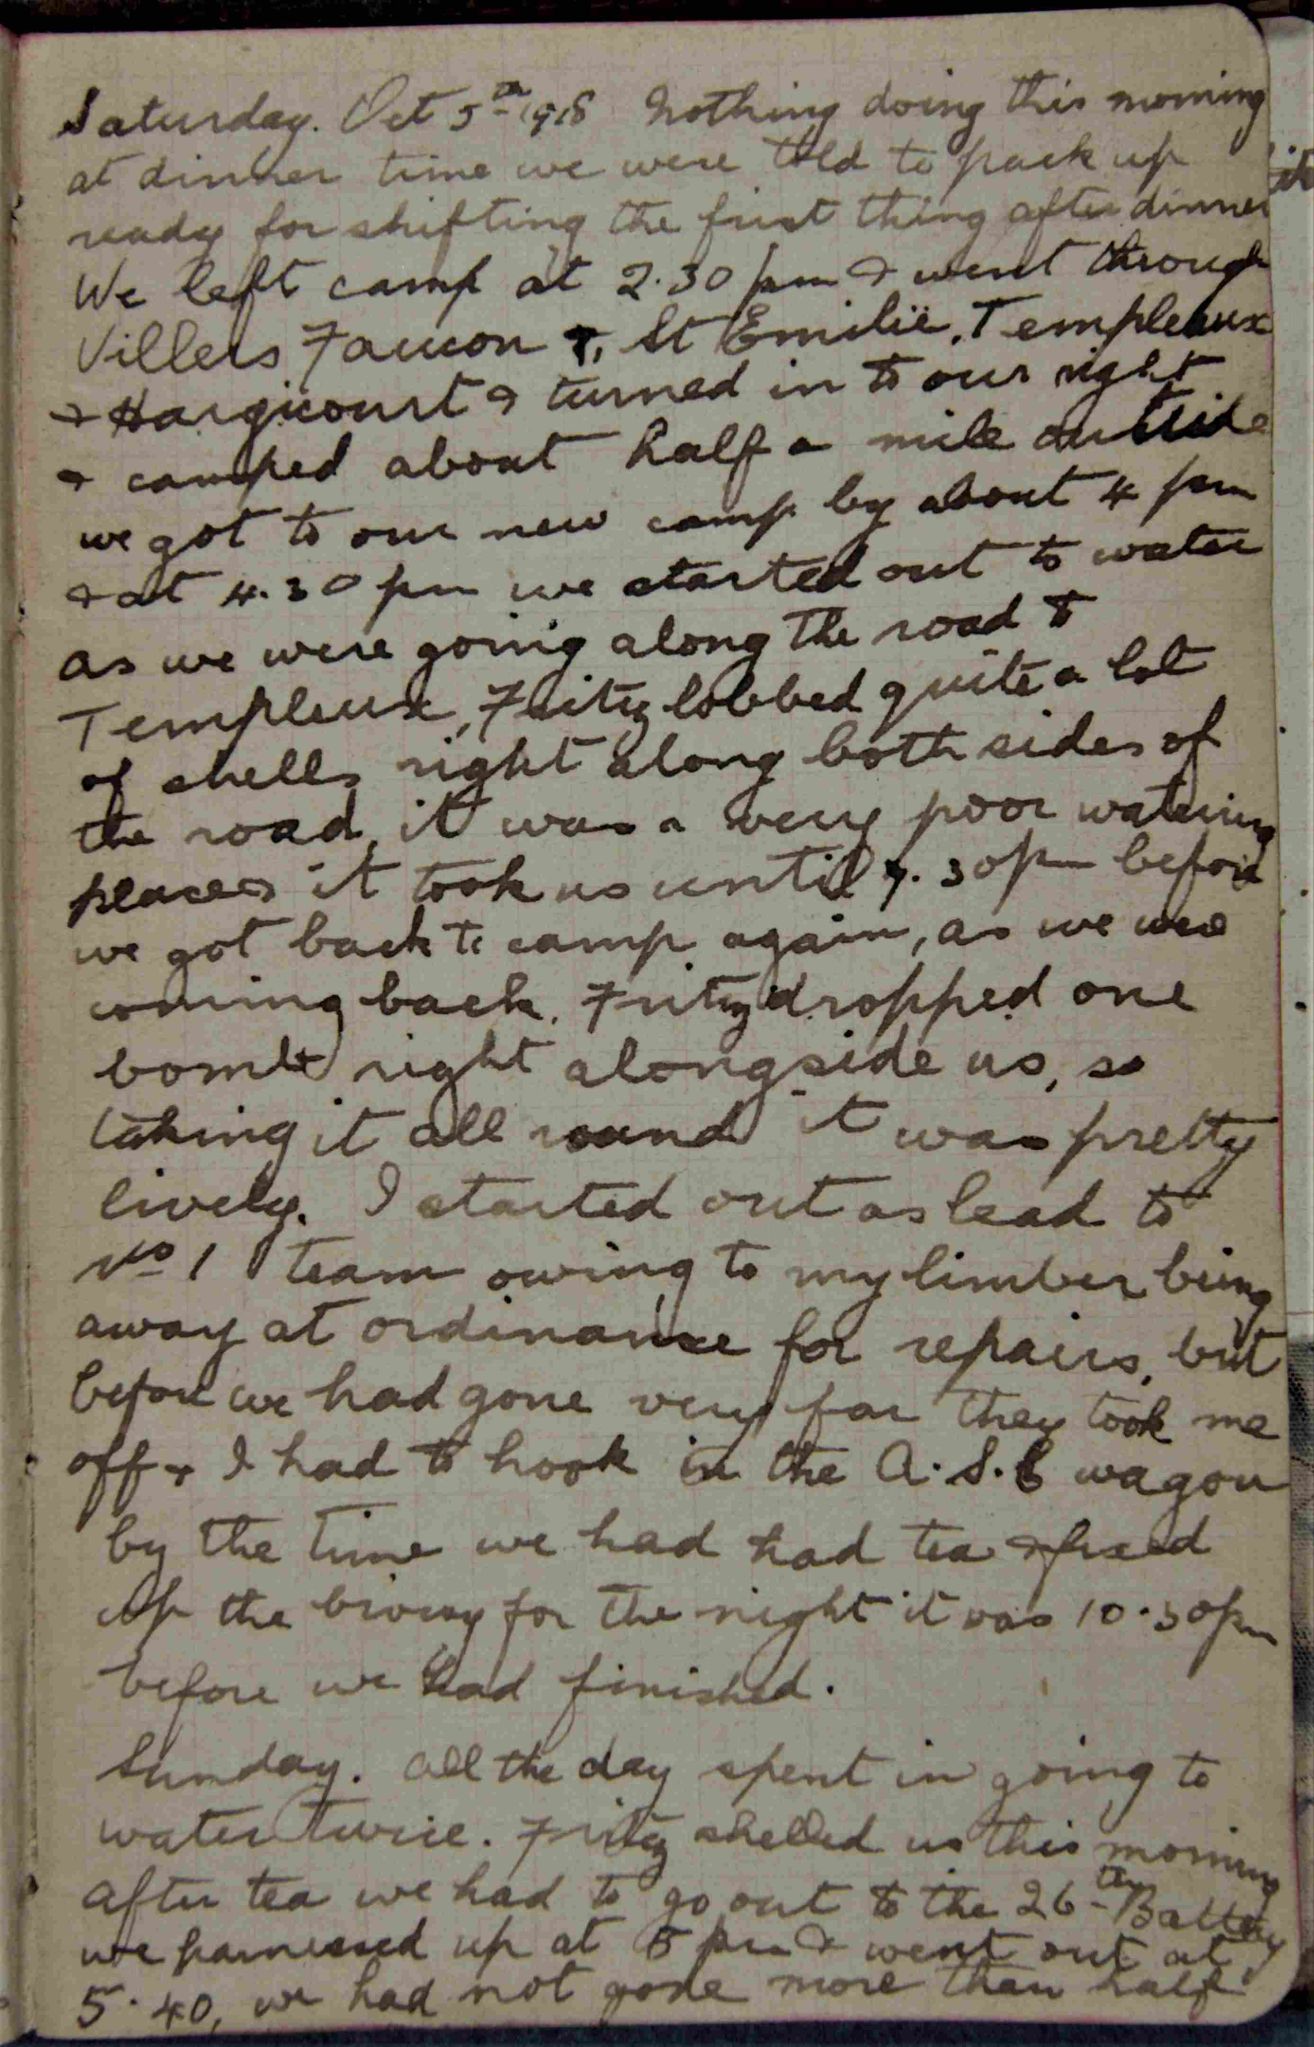 Saturday. Oct 5th 1918 Nothing doing this morning
at dinner time we were told to pack up
ready for shifting the first thing after dinner
We left camp at 2.30 pm & went through
Villers Faucon, St Emilie, Templeux
& Hargicourt & turned in to our right
& camped about half a mile outside
we got to our new camp by about 4 pm
& at 4.30 pm we started out to water
as we were going along the road to
Templeux, Fritz lobbed quite a lot
of shells right along both sides of
the road, it was a very poor watering
places it took us until 7.30 pm before
we got back to camp again, as we were
coming back, Fritz dropped one
bomb right alongside us, so
taking it all round it was pretty
lively. I started out as lead to
No 1 team owing to my limber being
away at ordinance for repairs, but
before we had gone very far they took me
off & I had to hook in the A.S.C wagon
by the time we had had tea & fixed
up the bivvy for the night it was 10.30 pm
before we had finished.
Sunday. All the day spent in going to
water twice. Fritz shelled us this morning
After tea we had to go out to the 26th Battery
we harnessed up at 5 pm & went out at
5.40, we had not gone more than half
it